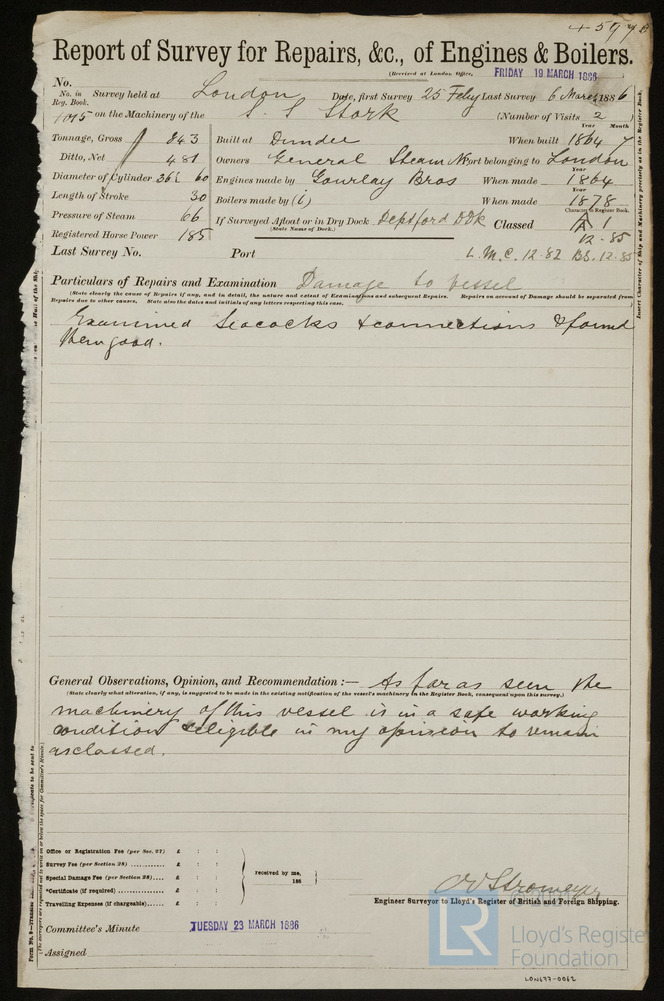 + 5978
Report of Survey for Repairs, &c., of Engines & Boilers.
(Received at London Office, FRIDAY 19 MARCH 1886
No.
No. in Reg. Book. Survey held at London Date, first Survey 25 Feby Last Survey 6 March 1886
1015 on the Machinery of the S. S Stork (Number of Visits 2
Year Month
Tonnage, Gross 843 Built at Dundee When built 1864 7
Ditto, Net 481 Owners General Steam N Port belonging to London
Year
Diameter of Cylinder 36 & 60 Engines made by Gourlay Bros When made 1864
Year
Length of Stroke 30 Boilers made by (i) When made 1878
Character in Register Book.
Pressure of Steam 66 If Surveyed Afloat or in Dry Dock Deptford DDk Classed A 1
(State Name of Dock.)
Registered Horse Power 185 12.85
Last Survey No. Port L.M.C. 12.82 B.S. 12.85
Particulars of Repairs and Examination Damage to vessel
(State clearly the cause of Repairs if any, and in detail, the nature and extent of Examinations and subsequent Repairs. Repairs on account of Damage should be separated from
Repairs due to other causes. State also the dates and initials of any letters respecting this case.
Examined Seacocks & connections & found
them good.
General Observations, Opinion, and Recommendation :— As far as seen the
(State clearly what alteration, if any, is suggested to be made in the existing notification of the vessel's machinery in the Register Book, consequent upon this survey.)
machinery of this vessel is in a safe working
condition & eligible in my opinion to remain
as classed.
Office or Registration Fee (per Sec. 27) £ : :
Survey Fee (per Section 28) £ : :
Special Damage Fee (per Section 28) £ : :
*Certificate (if required) £ : :
Travelling Expenses (if chargeable) £ : :
received by me,
188
Stromeyer
Engineer Surveyor to Lloyd's Register of British and Foreign Shipping.
Committee's Minute TUESDAY 23 MARCH 1886
Assigned
LR
Lloyd's Register
Foundation
LON677-0062
Insert Character of Ship and Machinery precisely as in the Register Book.